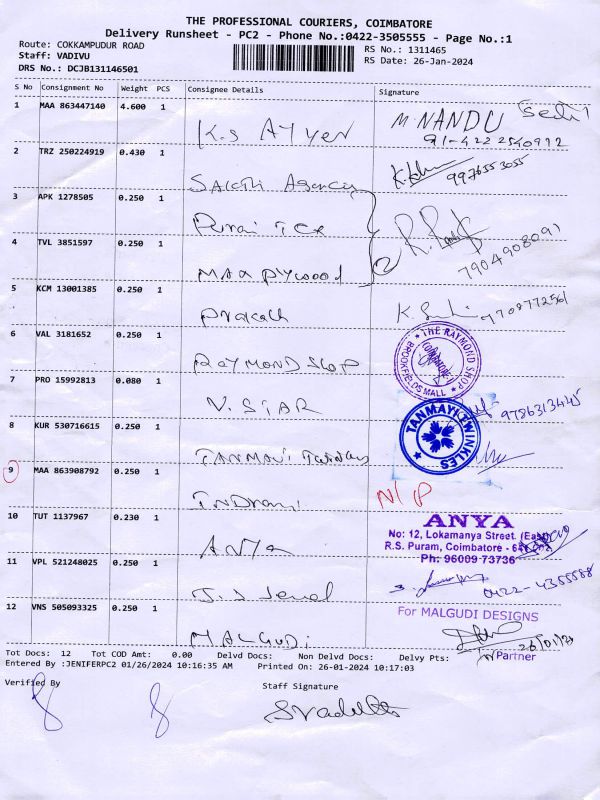 THE PROFESSIONAL COURIERS, COIMBATORE
Delivery Runsheet - PC2 - Phone No.:0422-3505555 - Page No.:1
Route: COKKAMPUDUR ROAD
Staff: VADIVU
DRS No.: DCJB131146501
RS No.: 1311465
RS Date: 26-Jan-2024
S No Consignment No Weight PCS Consignee Details Signature
1 MAA 863447140 4.600 1 K.S AIYYER M NANDU
2 TRZ 250224919 0.430 1 SAKTHI Agency 9976553055
3 APK 1278505 0.250 1
4 TVL 3851597 0.250 1 MAA plywood 7904908091
5 KCM 13001385 0.250 1 Prakash
6 VAL 3181652 0.250 1 RAYMOND SHOP
THE RAYMOND SHOP
BROOKFIELDS MALL
7 PRO 15992813 0.080 1 V. STAR
8 KUR 530716615 0.250 1
TANMAYI TWINKLES
9 MAA 863908792 0.250 1 INDrani N/P
10 TUT 1137967 0.230 1 ANYA
ANYA
No: 12, Lokamanya Street. (East)
R.S. Puram, Coimbatore - 641 002.
Ph: 96009 73736
11 VPL 521248025 0.250 1 0422-4355588
12 VNS 505093325 0.250 1 MALGUDI
For MALGUDI DESIGNS
Partner
Tot Docs: 12 Tot COD Amt: 0.00 Delvd Docs: Non Delvd Docs: Delvy Pts:
Entered By :JENIFERPC2 01/26/2024 10:16:35 AM Printed On: 26-01-2024 10:17:03
Verified By Staff Signature